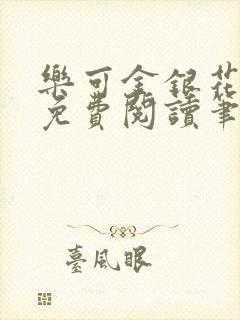 樂可金銀花
免費閱讀筆
臺風眼